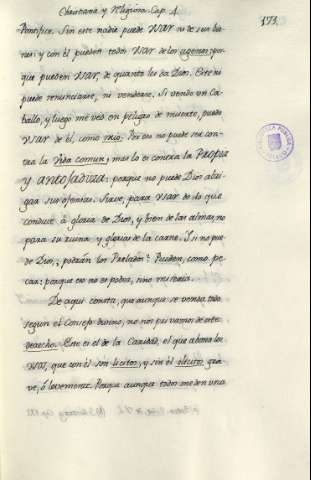 Christiana y Religiosa. Cap. 4.
173.
Pontifice. Sin este nadie puede usar ni de sus bie-
nes: y con él pueden todos usar de los agenos: por-
que pueden usar, de quanto les da Dios. Este ni
puede renunciarse, ni venderse. Si vendo un Ca-
ballo, y luego me veo en peligro de muerte, puedo
usar de él, como mio. Por eso no puede ser con-
tra la Vida comun; mas lo es contra la Propia
y antojadiza: porque no puede Dios abri-
gar sus ofensas. Sirve, para usar de lo que
conduce à gloria de Dios, y bien de las almas; no
para su ruina y glorias de la carne. Y si no pue-
de Dios, podràn los Prelados? Pueden, como pe-
car: porque eso no es poder, sino miseria.
De aqui consta, que aunque se venda todo
segun el Consejo divino, no nos privamos de este
derecho. Este es el de la Caridad, el que abona los
usos, que con él son licitos, y sin él ilicitos gra-
ve, ò levemente. Porque aunque todos me den una